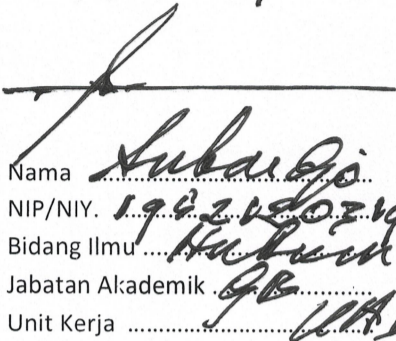 Nama Subardjo
NIP/NIY.
Bidang Ilmu Hukum
Jabatan Akademik GB
Unit Kerja